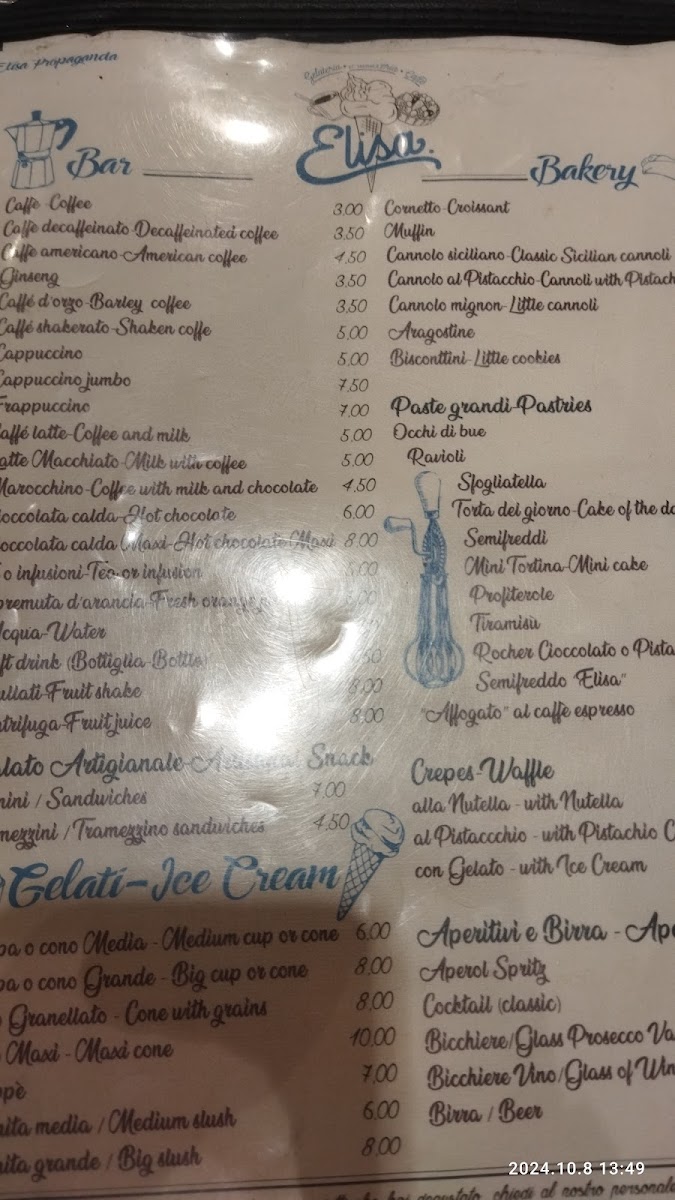 Elisa Propaganda
Elisa.
Bar
Caffè-Coffee 3,00
Caffè decaffeinato-Decaffeinated coffee 3,50
Caffè americano-American coffee 4,50
Ginseng 3,50
Caffé d'orzo-Barley coffee 3,50
Caffé shakerato-Shaken coffe 5,00
Cappuccino 5,00
Cappuccino jumbo 7,50
Frappuccino 7,00
affé latte-Coffee and milk 5,00
atte Macchiato-Milk with coffee 5,00
Marocchino-Coffee with milk and chocolate 4,50
ioccolata calda-Hot chocolate 6,00
occolata calda Maxi-Hot chocolate Maxi 8,00
o infusioni-Tea or infusion
premuta d'arancia-Fresh orange
Acqua-Water
ft drink (Bottiglia-Bottle)
ullati-Fruit shake 8,00
ntrifuga-Fruit juice 8,00
lato Artigianale-Artisanal Snack
nini / Sandwiches 7,00
mezzini / Tramezzino sandwiches 4,50
Gelati-Ice Cream
pa o cono Media - Medium cup or cone 6,00
pa o cono Grande - Big cup or cone 8,00
Granellato - Cone with grains 8,00
Maxi - Maxi cone 10,00
ppè 7,00
nita media / Medium slush 6,00
nita grande / Big slush 8,00
Bakery
Cornetto-Croissant
Muffin
Cannolo siciliano-Classic Sicilian cannoli
Cannolo al Pistacchio-Cannoli with Pistach
Cannolo mignon-Little cannoli
Aragostine
Biscottini-Little cookies
Paste grandi-Pastries
Occhi di bue
Ravioli
Sfogliatella
Torta dei giorno-Cake of the da
Semifreddi
Mini Tortina-Mini cake
Profiterole
Tiramisù
Rocher Cioccolato o Pista
Semifreddo "Elisa"
"Affogato" al caffè espresso
Crepes-Waffle
alla Nutella - with Nutella
al Pistaccchio - with Pistachio C
con Gelato - with Ice Cream
Aperitivi e Birra - Ape
Aperol Spritz
Cocktail (classic)
Bicchiere/Glass Prosecco Va
Bicchiere Vino/Glass of Win
Birra / Beer
2024.10.8 13:49